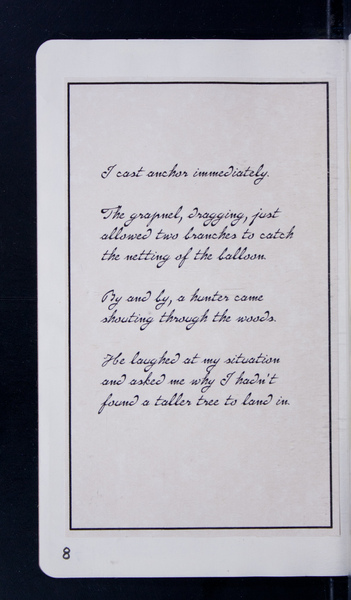 I cast anchor immediately.
The grapnel, dragging, just
allowed two branches to catch
the netting of the balloon.
By and by, a hunter came
shouting through the woods.
He laughed at my situation
and asked me why I hadn't
found a taller tree to land in.
8